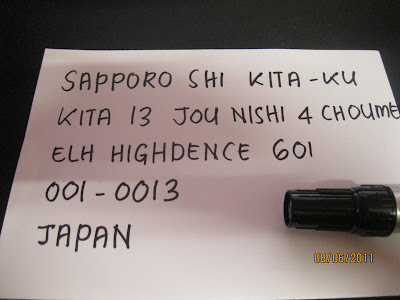 SAPPORO SHI KITA-KU
KITA 13 JOU NISHI 4 CHOUME
ELH HIGHDENCE 601
001-0013
JAPAN
03/06/2011